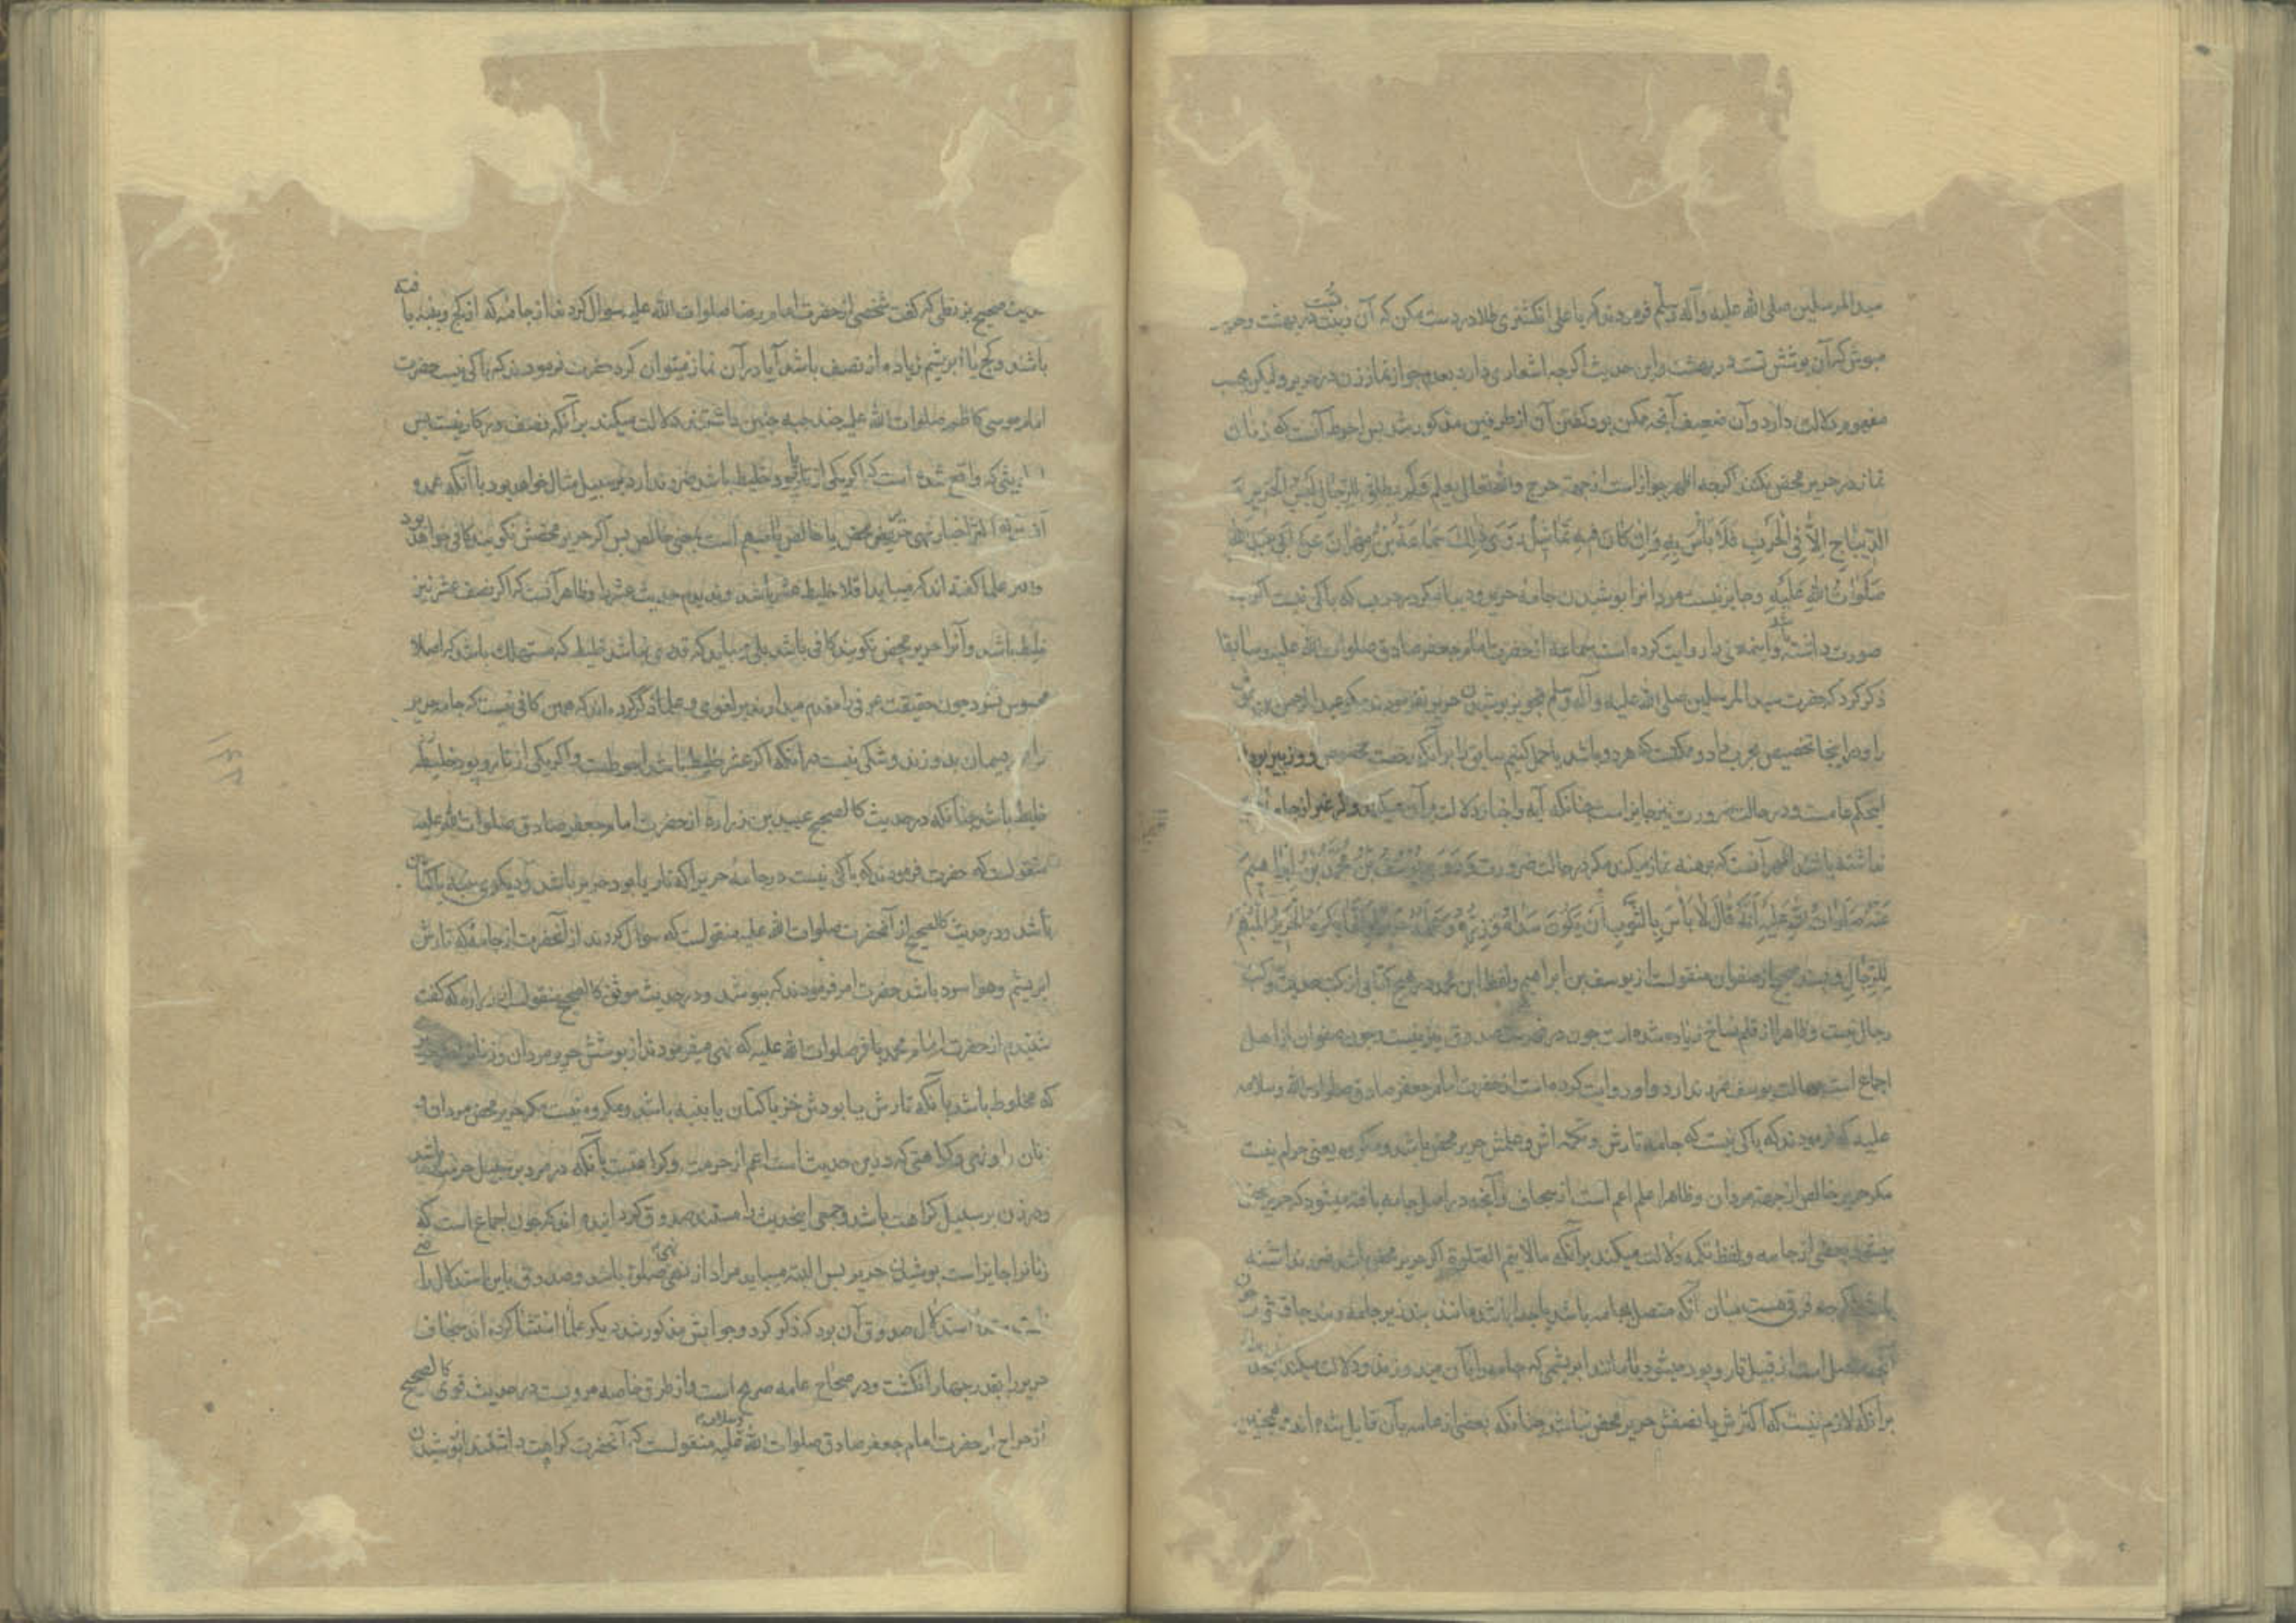 سید المرسلین صلی الله علیه وآله وسلم فرمودند که یا علی انکشتری طلا در دست مکن که آن زینت تست در بهشت وحریر
مپوش که آن پوشش تست در بهشت واین حدیث اکرچه اشعاری دارد بعدم جواز نماز زن در حریر ولیکن بحسب
مفهوم دلالت دارد وآن ضعیف آنچه ممکن بود کفتن آن از طرفین مذکور شد پس احوط آنست که زنان
نماز در حریر محض نکنند اکرچه اظهر جواز است از جهة حرج والله تعالی یعلم فَلَم یطلق للرّجال لبس الحریر وَ
الدّیباجِ اِلاّ فِی الحَربِ فَلاَ بَأسَ بِهِ وَاِن کانَ فیهِ تَماثیلُ رَوَی ذلِکَ سَماعَةُ بْنُ مِهْرانَ عَن اَبی عَبدِ الله
صَلَواتُ اللهِ عَلَیهِ وجایز نیست مردانرا پوشیدن جامهٔ حریر ودیبا مکر در حرب که باکی نیست اکرچه
صورت داشته باشد واینمعنی را روایت کرده است سماعه از حضرت امام جعفر صادق صلوات الله علیه وسابقا
ذکر کرد که حضرت سید المرسلین صلی الله علیه وآله وسلم تجویز پوشیدن حریر نفرمودند مکر عبد الرحمن بن عوف
را ودر اینجا تخصیص بحرب داد وممکنست که هر دو باشد یا حمل کنیم سابق را بر آنکه رخصت مخصوص
اینحکم عامست ودر حالت ضرورت نیز جایز است چنانکه آیه واخبار دلالت بر آن میکند واکر غیر از جامهٔ
نداشته باشد اظهر آنست که برهنه نماز میکند مکر در حالت ضرورت وَرَوَی یُوسُفُ بْنُ مُحَمَّدِ بْنِ اِبراهیمَ
عَنْهُ صَلَواتُ اللهِ عَلَیهِ اَنَّهُ قالَ لاَ بَأسَ بِالثَّوبِ اَن یَکُونَ سَداهُ وَزِرُّهُ وَعَلَمُهُ حَریراً وَاِنَّما یُکرَهُ الحَریرُ المُبهَمُ
لِلرِّجالِ وبسند صحیح از صفوان منقولست از یوسف بن ابراهیم ولفظ ابن محمد در هیچ کتابی از کتب حدیث وکتب
رجال نیست وظاهرا از قلم نساخ زیاده شده است چون در فهرست صدوق نیز نیست وچون صفوان از اهل
اجماع است جهالت یوسف ضرر ندارد واو روایت کرده است از حضرت امام جعفر صادق صلوات الله وسلامه
علیه که فرمودند که باکی نیست که جامه تارش وتکمه اش وعلمش حریر محض باشد ومکروه یعنی حرام نیست
مکر حریر خالص از جهة مردان وظاهرا علم اعم است از سجاف وآنچه در اصل جامه بافته میشود که حریر محض
بعضی از جامه ولفظ تکمه دلالت میکند بر آنکه مالایتم الصلوة اکر حریر محض باشد ضرر نداشته
باشد اکرچه فرقی هست میان آنکه متصل بجامه باشد یا جدا باشد مانند بند زیر جامه وبند چاقشور چون
متصل است از قبیل تار وپود میشود یا مانند ابریشمی که جامه را بآن میدوزند ودلالت میکند
بر آنکه لازم نیست که اکثرش یا نصفش حریر محض نباشد چنانکه بعضی از عامه بآن قایل شده اند وهمچنین
حدیث صحیح بزنطی که کفت شخصی از حضرت امام رضا صلوات الله علیه سوال کردند از جامهٔ که از کج وپنبه بافته
باشند وکج یا ابریشم زیاده از نصف باشد آیا در آن نماز میتوان کرد حضرت فرمودند که باکی نیست حضرت
امام موسی کاظم صلوات الله علیه چند جبه چنین داشتند دلالت میکند بر آنکه نصف در کار نیست پس
واقع شده است که اکر یکی از تار یا پود خلیط باشد ضرر ندارد بر سبیل مثال خواهد بود با آنکه عمده
اخبار نهی حریر محض یا خالص یا مبهم است بمعنی خالص پس اکر حریر محضش نکویند کافی خواهد بود
علما کفته اند که میباید اقلا خلیط عشر باشد وندیدم حدیث عشر را وظاهر آنست که اکر نصف عشر نیز
خلیط باشد وآنرا حریر محض نکویند کافی باشد بلی میباید که قدری نباشد خلیط که مستهلک باشد که اصلا
محسوس نشود چون حقیقت عرفی را مقدم میدارند بر لغوی وعلما ذکر کرده اند که همین کافی نیست که جامه حریر
را بریسمان بدوزند وشکی نیست در آنکه اکر عشر خلیط باشد احوطست واکر یکی از تار وپود خلیط
خلیط باشد چنانکه در حدیث کالصحیح عبید بن زراره از حضرت امام جعفر صادق صلوات الله علیه
منقولست که حضرت فرمودند که باکی نیست در جامهٔ حریر اکه تار یا پود حریر باشد ودیکری پنبه یا کتان
باشد ودر حدیث کالصحیح از آنحضرت صلوات الله علیه منقولست که سوال کردند از آنحضرت از جامهٔ که تارش
ابریشم وهوا سود باشد حضرت امر فرمودند که بپوشند ودر حدیث موثق کالصحیح منقولست از زراره که کفت
شنیدم از حضرت امام محمد باقر صلوات الله علیه که نهی میفرمودند از پوشش حریر مردان وزنانرا
که مخلوط باشد بآنکه تارش یا پودش خز یا کتان یا پنبه باشد ومکروه نیست مکر حریر محض مردان و
زنان را ونهی وکراهتی که در این حدیث است اعم از حرمت وکراهتست بآنکه در مرد بر سبیل حرمت باشد
ودر زن بر سبیل کراهت باشد وجمعی اینحدیث را مستند صدوق کردانیده اند که چون اجماع است که
زنانرا جایز است پوشیدن حریر پس البته میباید مراد از نهی نهی صلوة باشد وصدوق باین استدلال را
استدلال صدوق آن بود که ذکر کرد وجوابش مذکور شد دیکر علما استثنا کرده اند سجاف
حریر را بقدر چهار انکشت ودر صحاح عامه صریح است واز طرق خاصه مرویست در حدیث قوی کالصحیح
از جراح از حضرت امام جعفر صادق صلوات الله وسلامه علیه منقولست که آنحضرت کراهت داشتند از پوشیدن